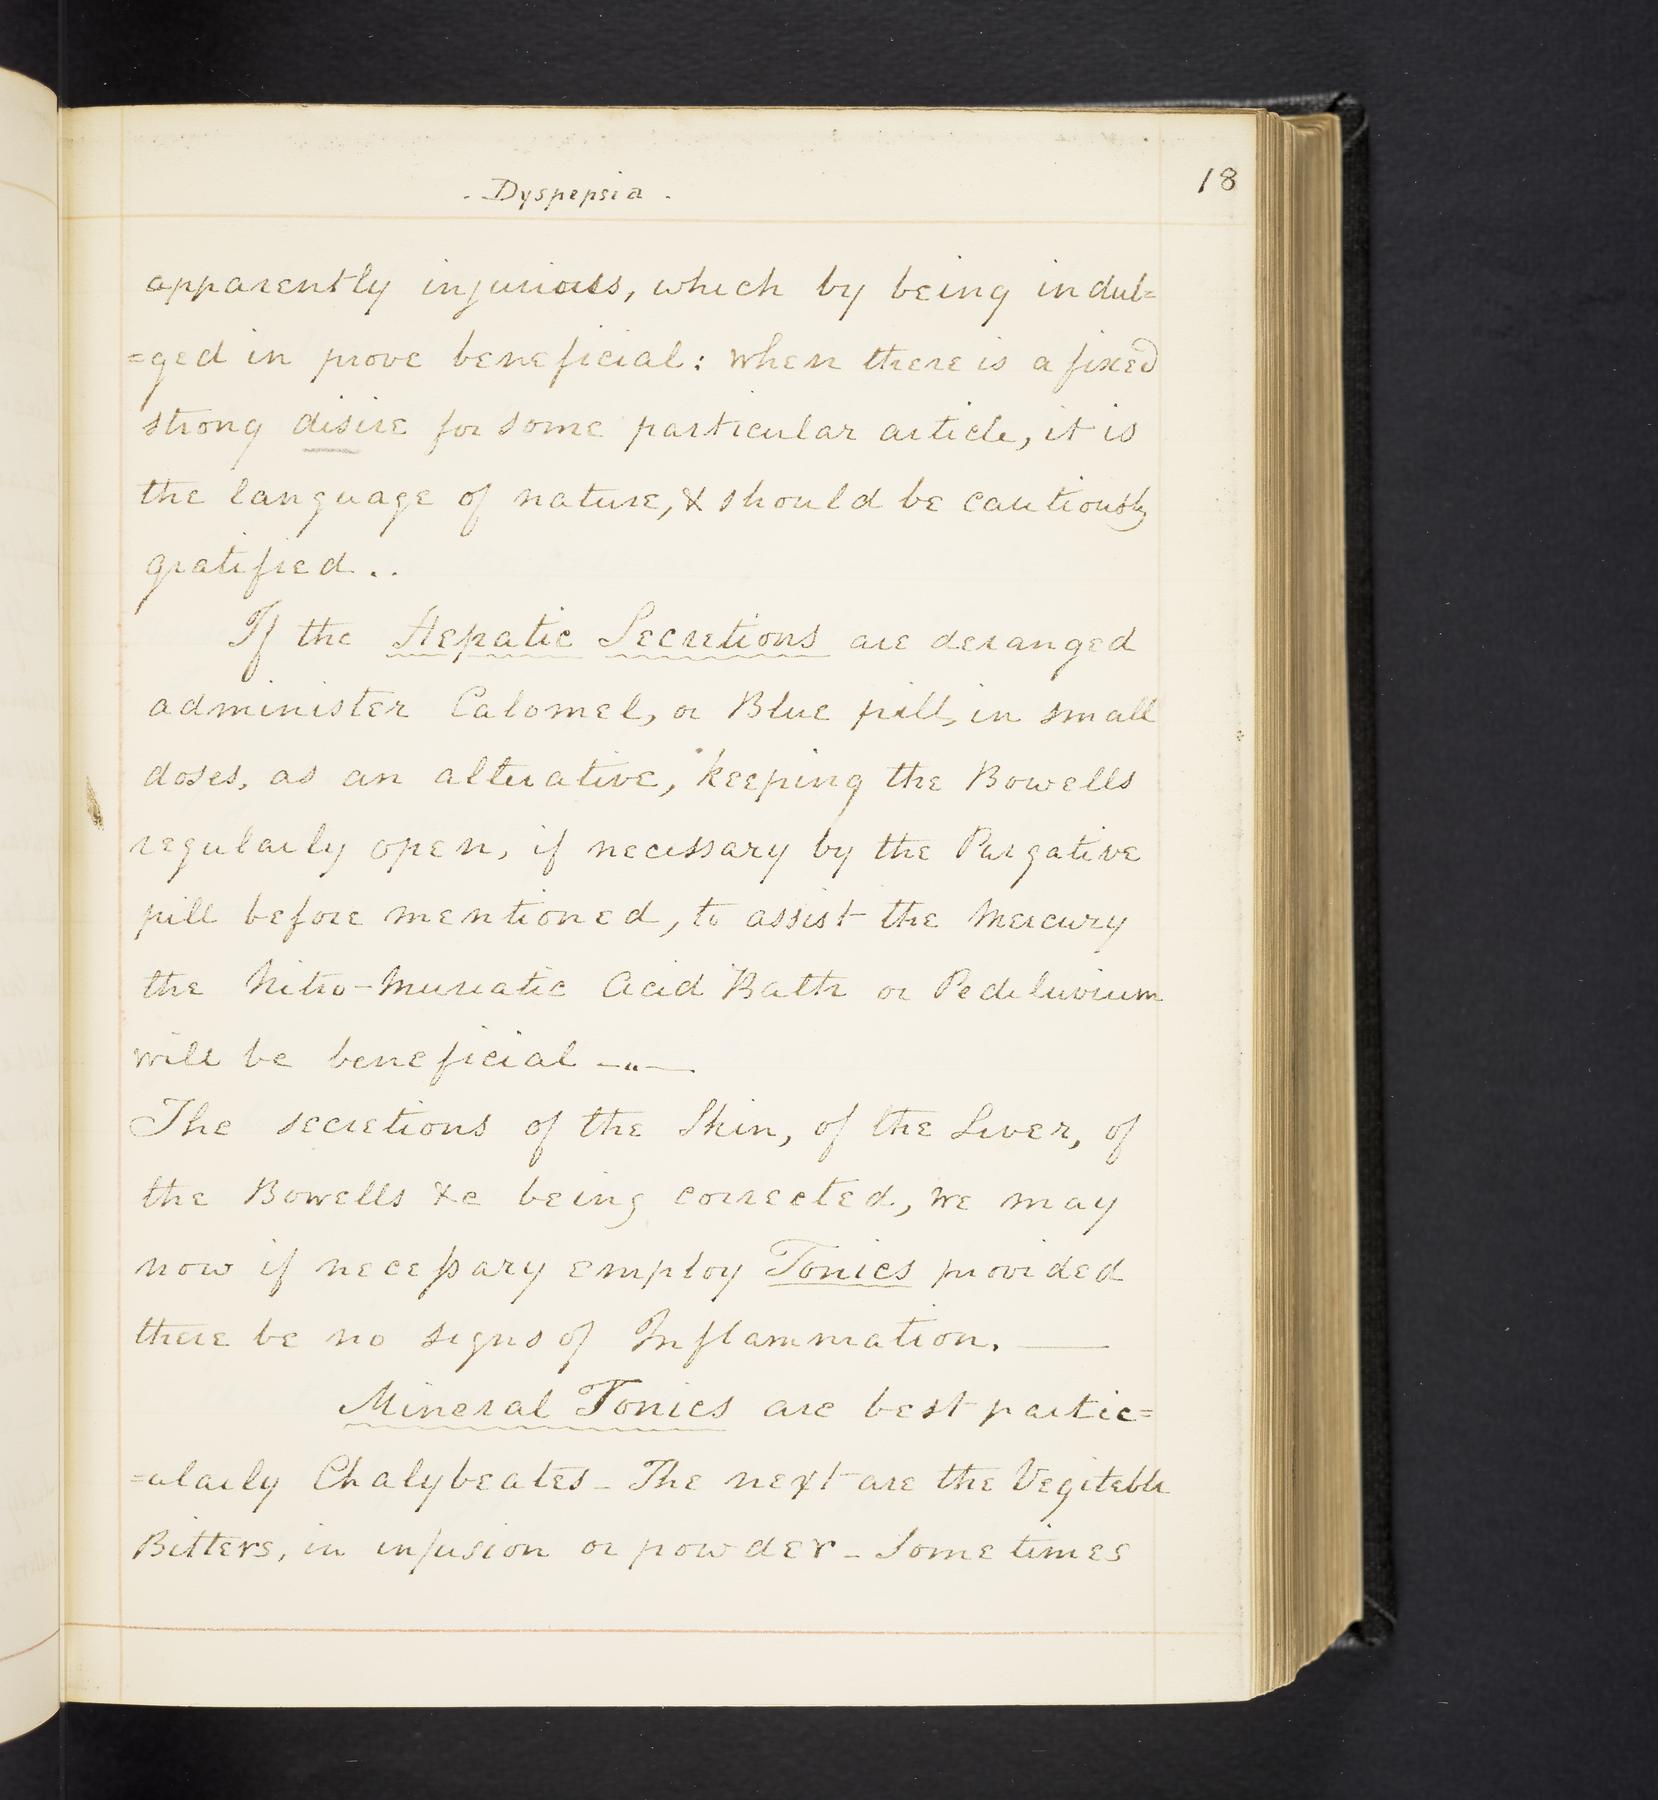 - Dyspepsia -
18
apparently injurious, which by being indul=
=ged in prove beneficial: when there is a fixed
strong disire for some particular article, it is
the language of nature, & should be cautiously
gratified..
If the Hepatic Secretions are deranged
administer Calomel, or Blue pill, in small
doses, as an alterative, keeping the Bowells
regularly open, if necessary by the Purgative
pill before mentioned, to assist the Mercury
the Nitro-Muriatic Acid Bath or Pediluvium
will be beneficial —"—
The secretions of the Skin, of the Liver, of
the Bowells &c being corrected, we may
now if necessary employ Tonics provided
there be no signs of Inflammation. —
Mineral Tonics are best partic=
=ularly Chalybeates - The next are the Vegitable
Bitters, in infusion or powder - Sometimes